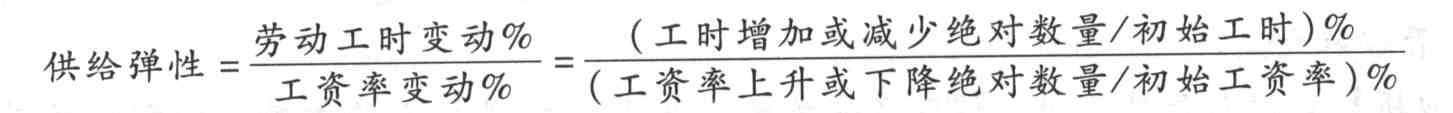 供给弹性=劳动工时变动%/工资率变动%=(工时增加或减少绝对数量/初始工时)%/(工资率上升或下降绝对数量/初始工资率)%